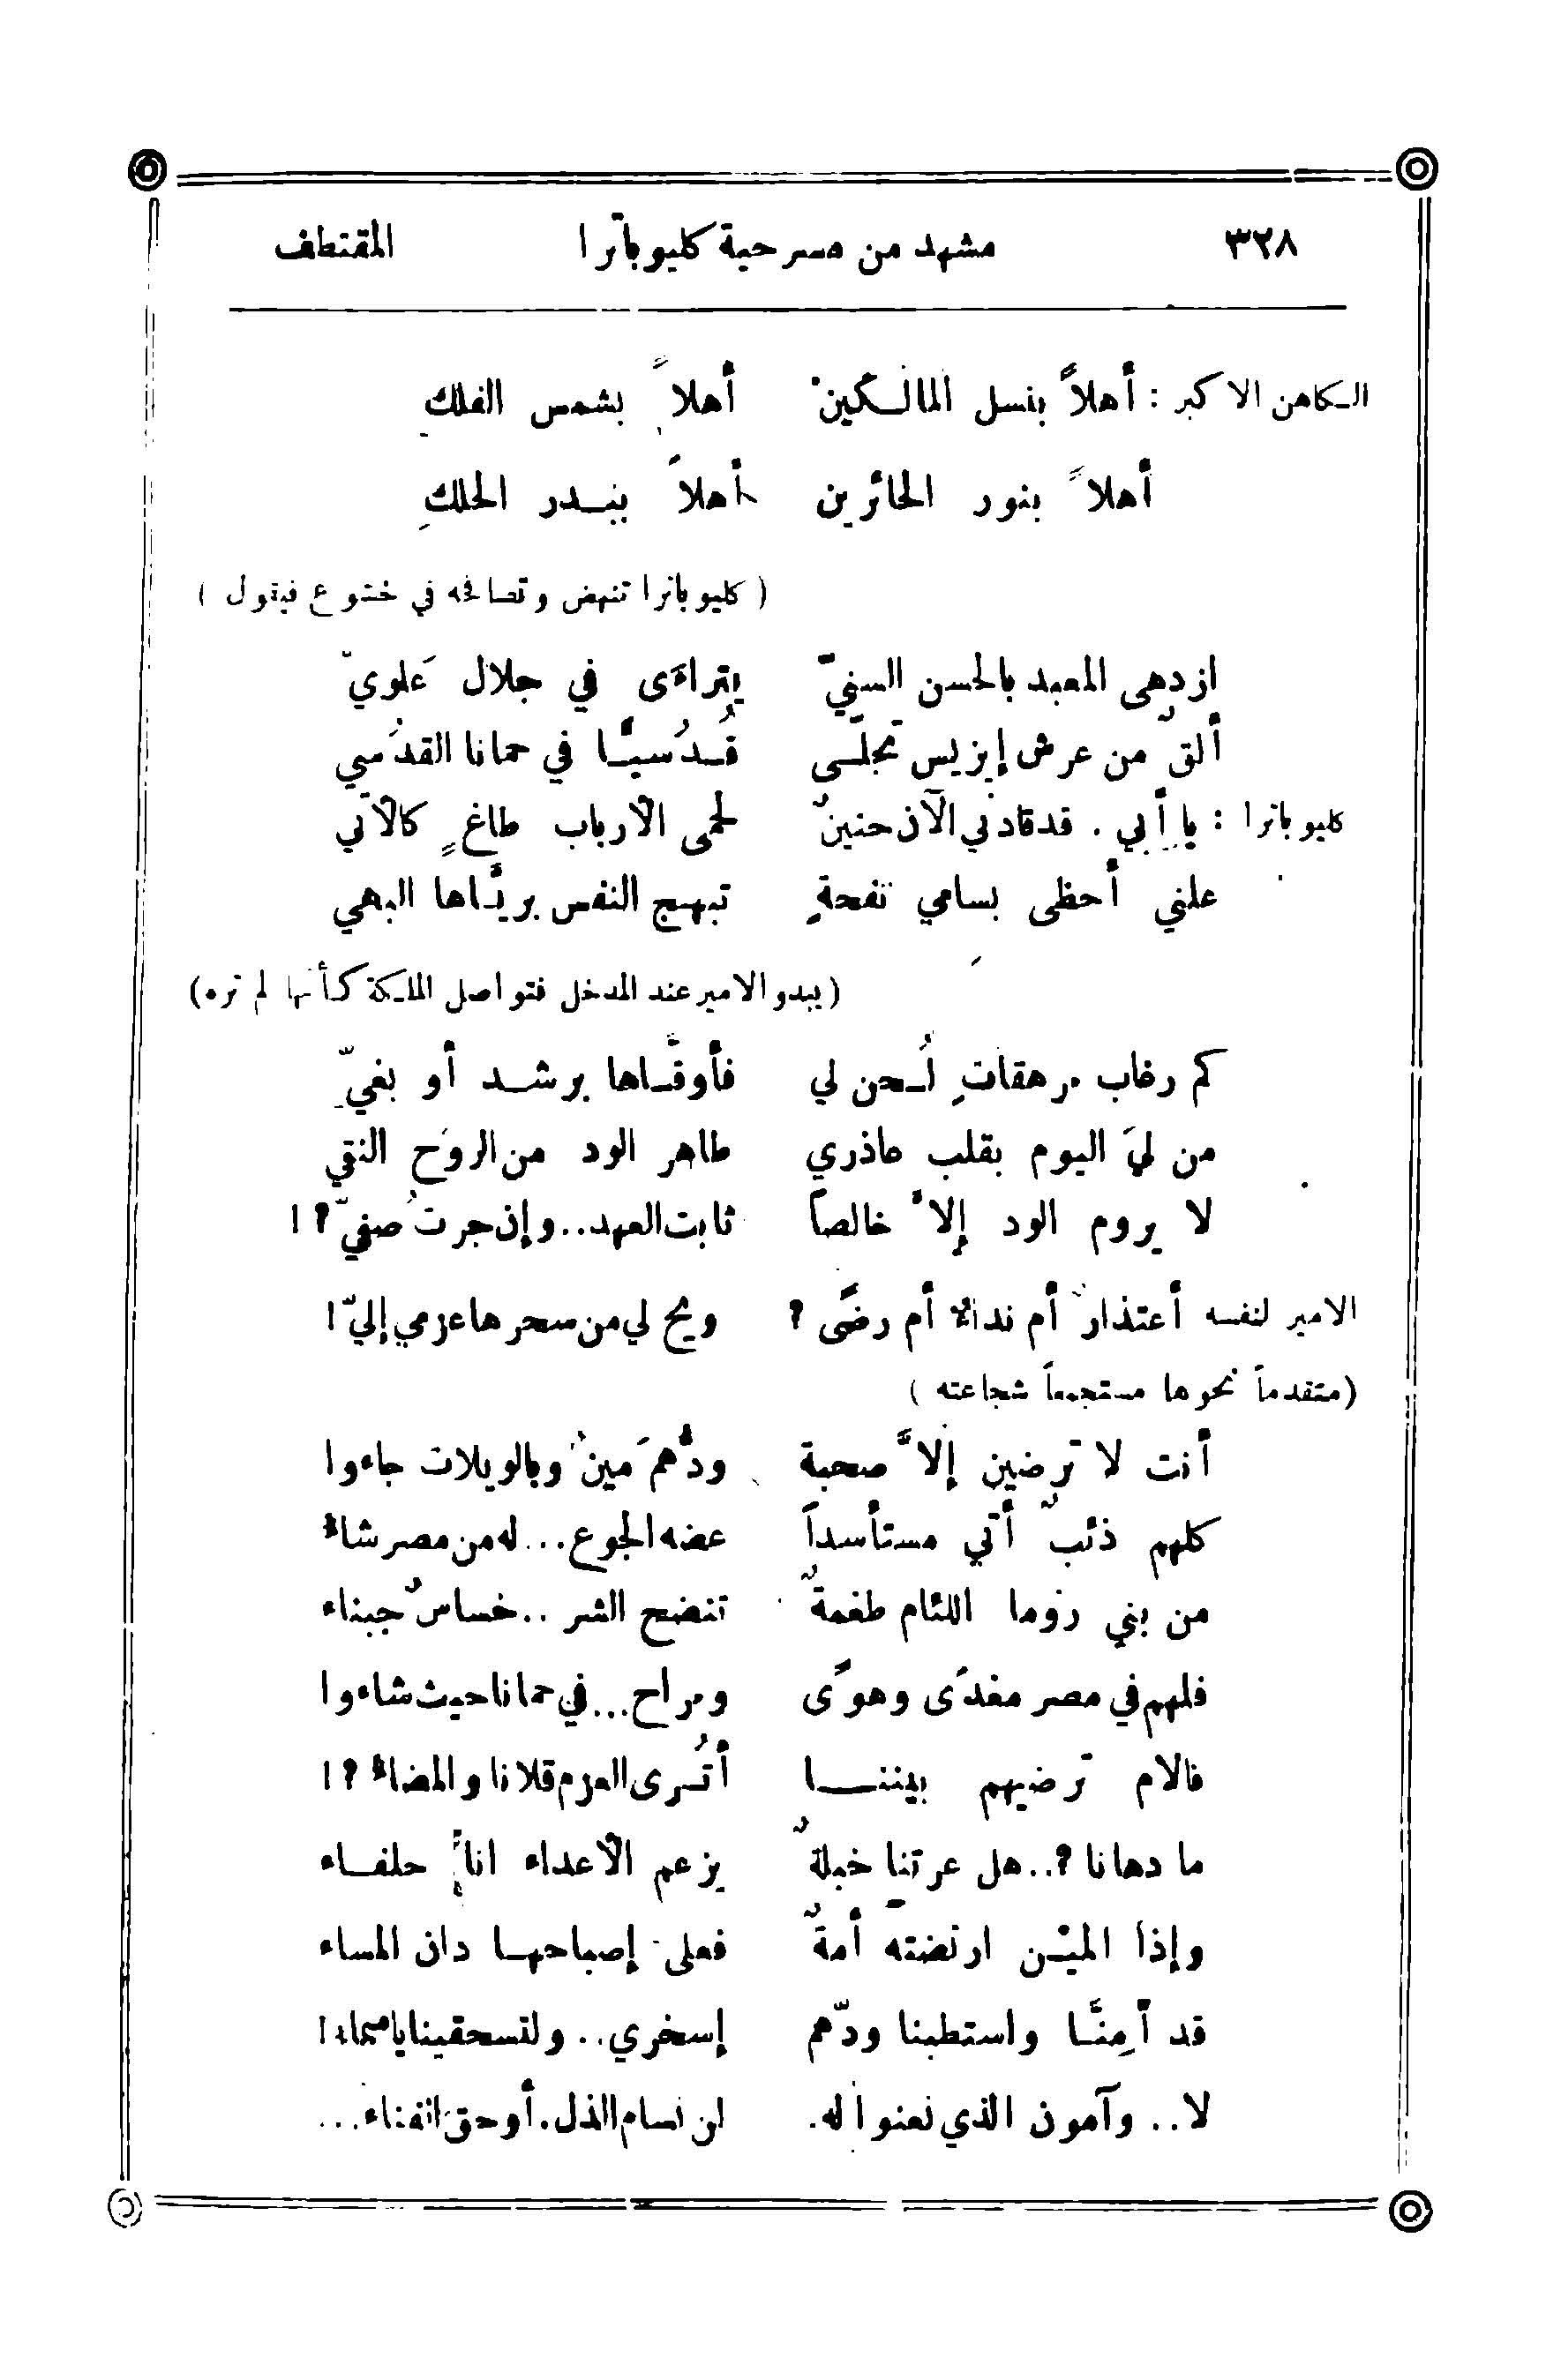 ٣٢٨ مشهد من مسرحية كليوباترا المقتطف
الكاهن الاكبر : أهلاً بنسل المالكين أهلاً بشمس الفلكِ
أهلاً بنور الحائرين أهلاً ببدر الحلكِ
( كليوباترا تنهض وتصافحه في خشوع فيقول )
ازدهى المعبد بالحسن السنيّ يتراءَى في جلال عَلويّ
ألقٌ من عرش إيزيس تجلّى قُدُسيًّا في حمانا القدُسي
كليوباترا : يا أبي . قد قادني الآن حنينٌ لحمى الأرباب طاغٍ كالآتي
علني أحظى بسامي نفحةٍ تبهج النفس بريَّاها البهي
(يبدو الامير عند المدخل فتواصل الملكة كأنها لم تره)
كم رغاب مرهقاتٍ لُحن لي فأوقَّاها برشد أو بغيّ
من ليَ اليوم بقلب عاذري طاهر الود من الروح النقي
لا يروم الود إلاَّ خالصاً ثابت العهد..وإن جرتُ صفيّ؟!
الامير لنفسه أعتذارٌ أم نداءٌ أم رضًى ؟ ويح لي من سحرها عزمي إليّ!
(متقدماً نحوها مستجمعاً شجاعته )
أنت لا ترضين إلاَّ صحبة ودُّهم مَينٌ وبالويلات جاءوا
كلهم ذئبٌ أتى مستأسداً عضه الجوع... له من مصر شاءُ
من بني روما اللئام طغمةٌ تنضح الشر ..خساسٌ جبناء
فلهم في مصر مغدًى وهوًى ومراح...في حمانا حيث شاءوا
فالام ترضيهم بيننا أتُرى العزم قلانا والمضاءُ؟!
ما دهانا؟..هل عرتنا خبلةٌ يزعم الأعداء انا حلفاء
وإذا الميْن ارتضته أمةٌ فعلى إصباحها دان المساء
قد أمِنَّا واستطبنا ودّهم إسخري.. ولتسحقينا يا سماء!
لا.. وآمون الذي نعنو له. لن نسام الذل.أو حق الفناء...